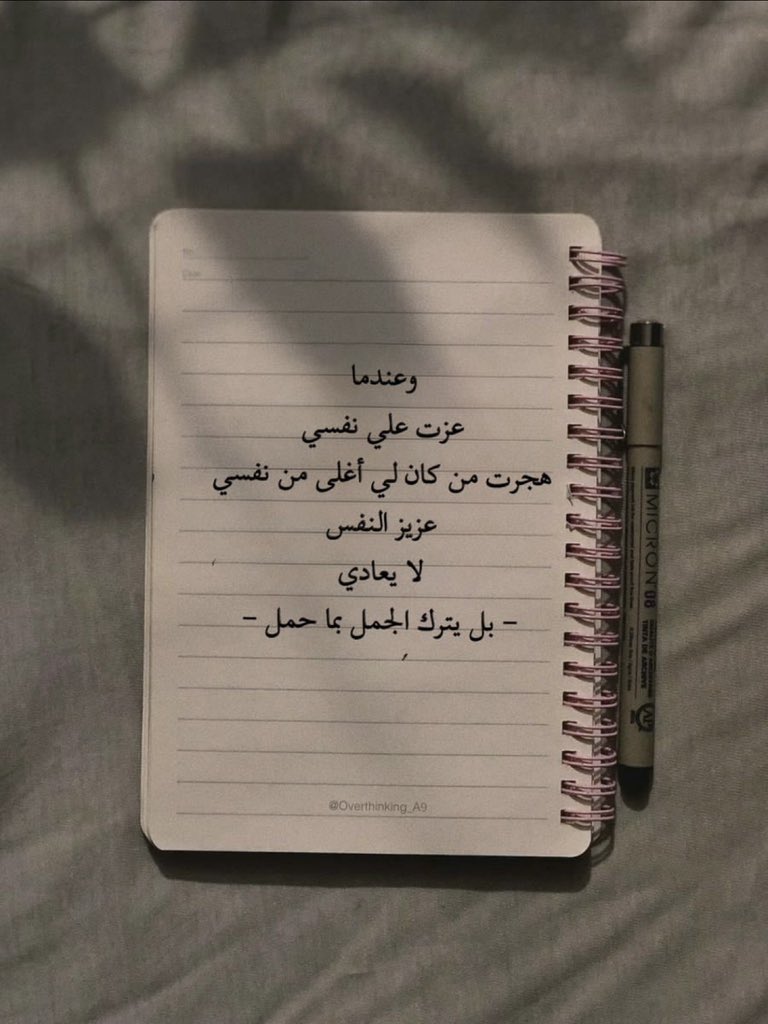 وعندما
عزت علي نفسي
هجرت من كان لي أغلى من نفسي
عزيز النفس
لا يعادي
- بل يترك الجمل بما حمل -
@Overthinking_A9
MICRON 08